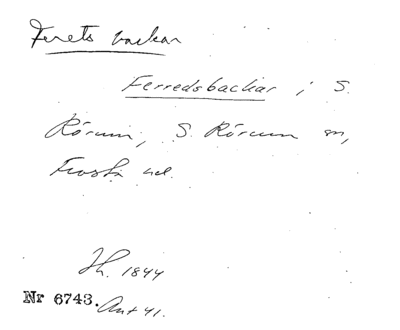 Ferets backar
Ferredsbackar i S.
Rörum, S. Rörum sn,
Frosta hd.
Lh. 1844
Nr 6743. Ant 41.